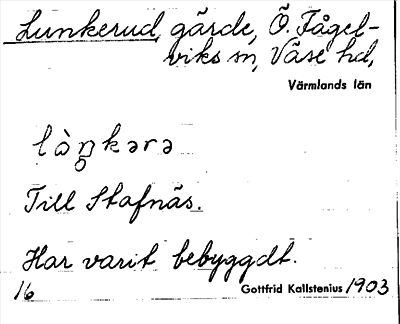 Lunkerud, gärde, Ö. Fågel-
viks sn, Väse hd,
Värmlands län
lòŋkərə
Till Stafnäs.
Har varit bebyggdt.
16 Gottfrid Kallstenius 1903